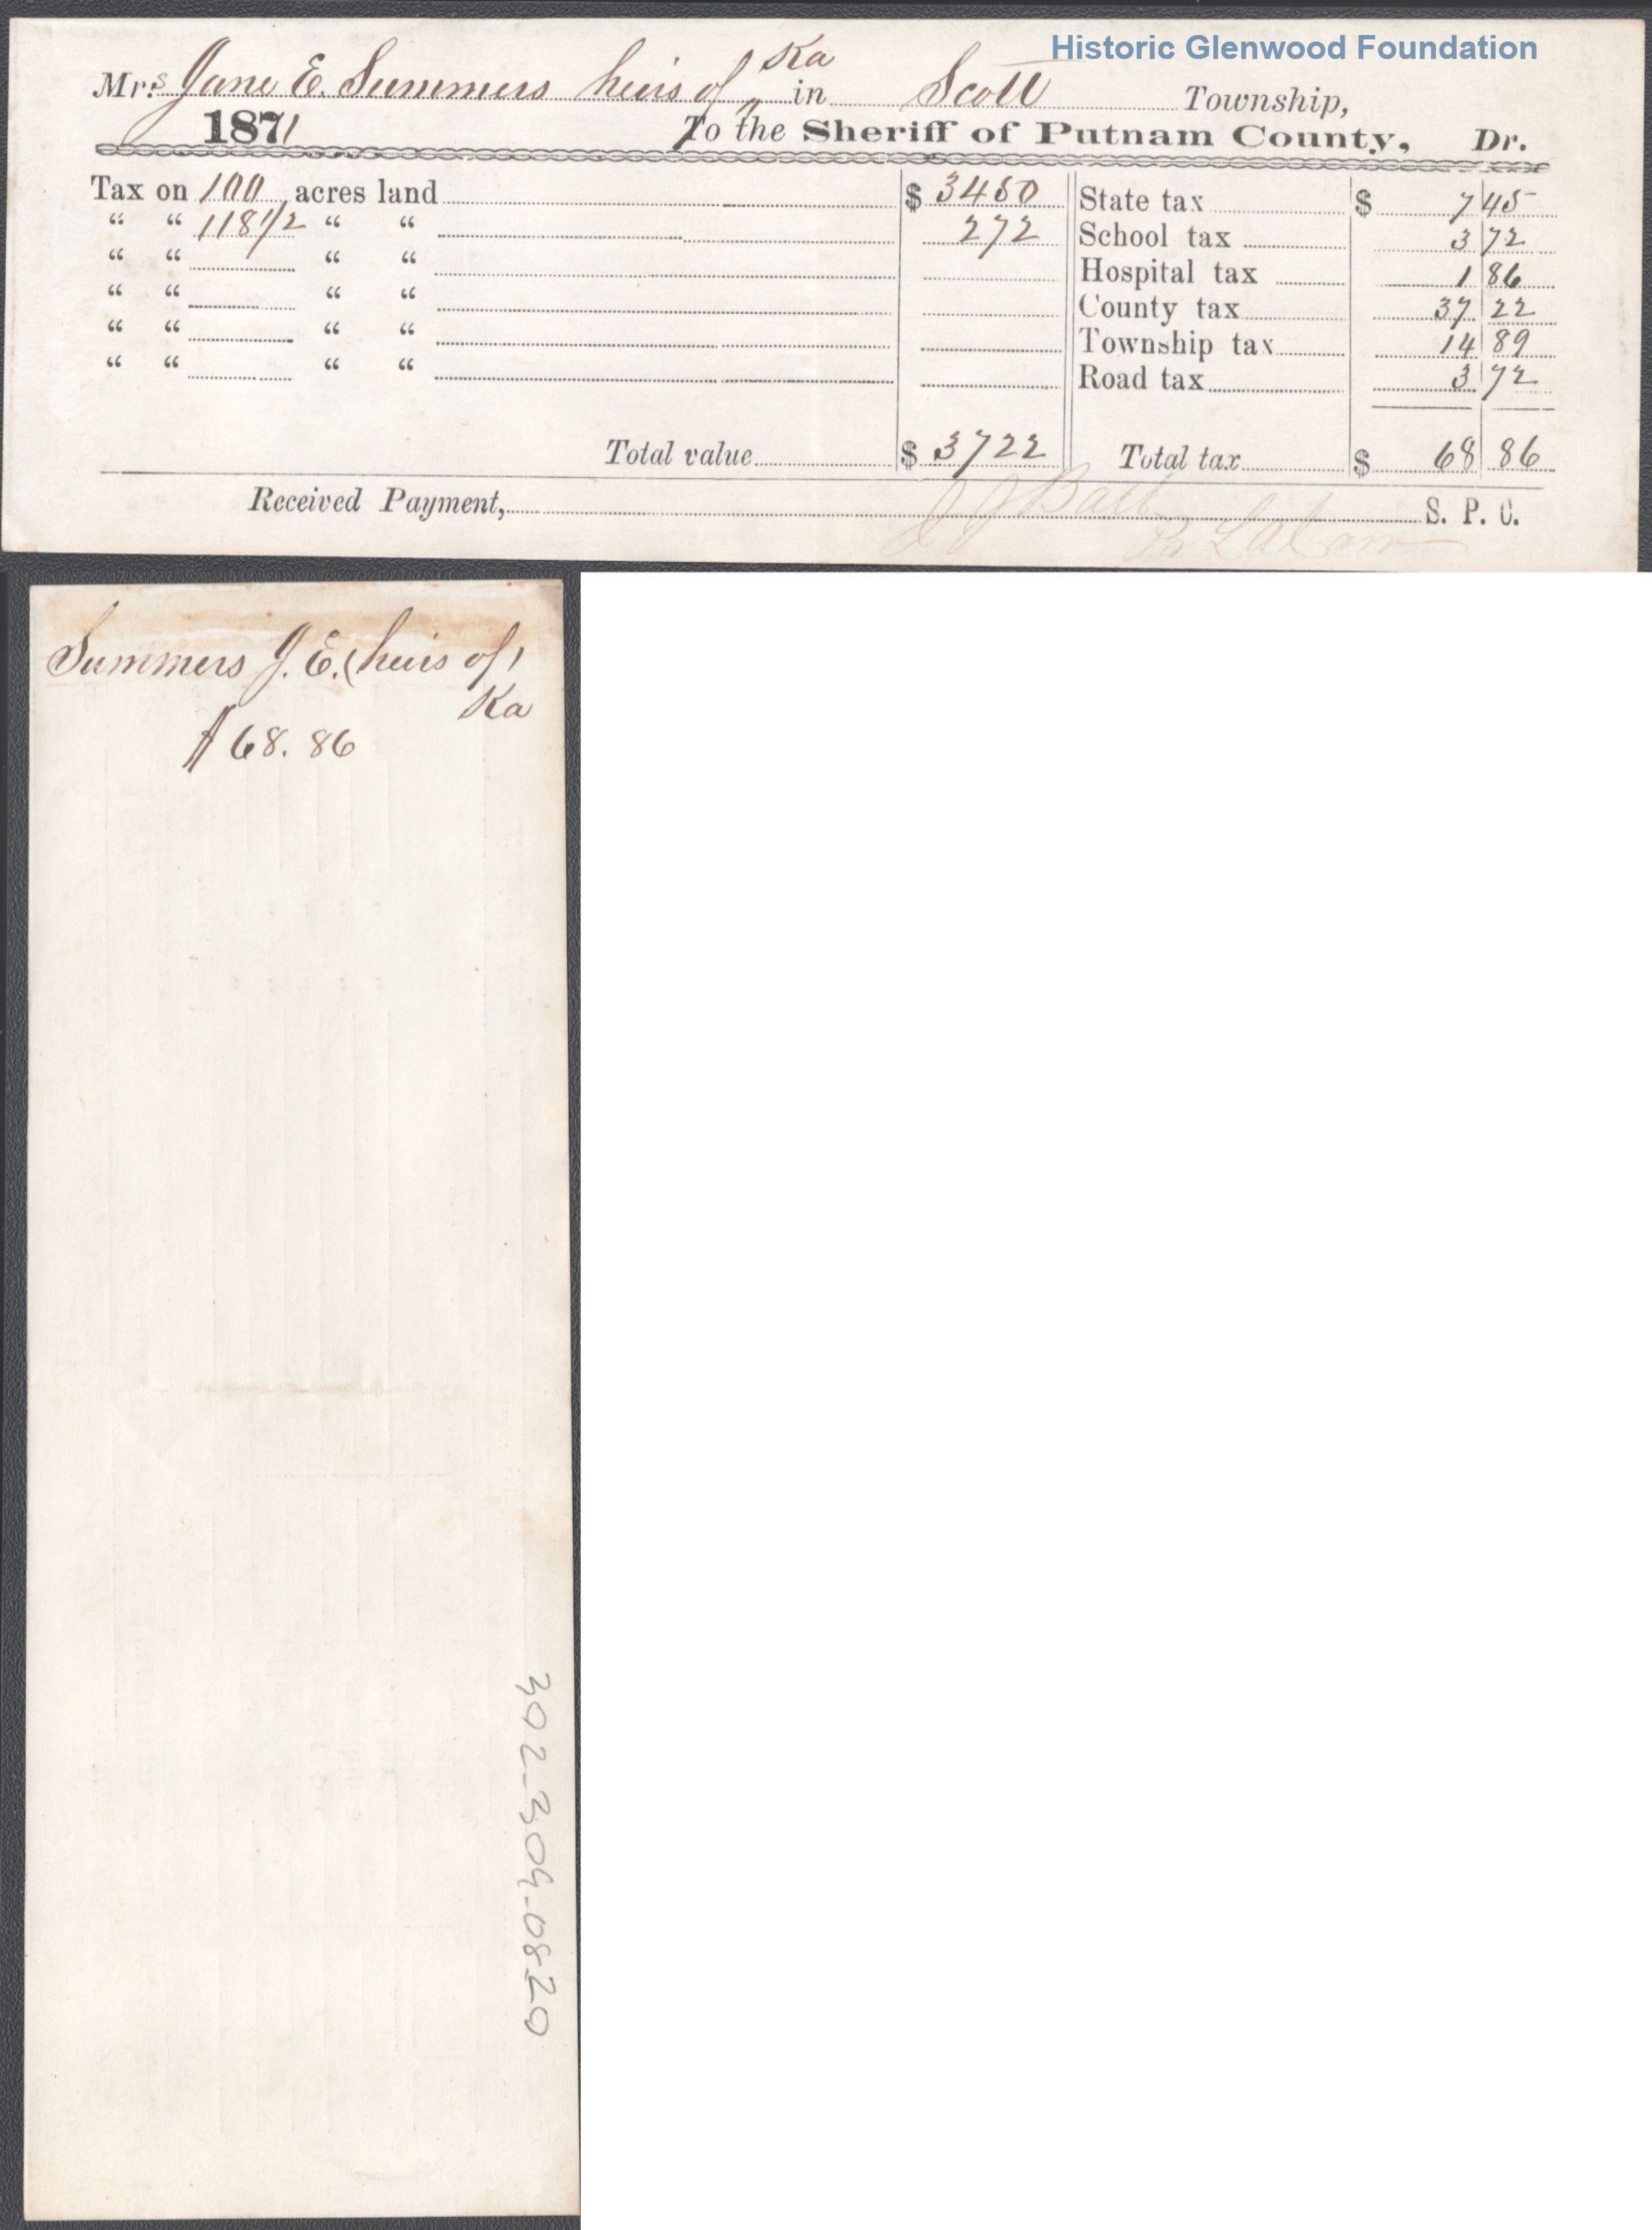 Historic Glenwood Foundation
Mrs Jane E. Summers heirs of Ka in Scott Township,
1871 To the Sheriff of Putnam County, Dr.
Tax on 100 acres land $ 3450 State tax $ 7 45
“ “ 118 1/2 “ “ 272 School tax 3 72
“ “ “ “ Hospital tax 1 86
“ “ “ “ County tax 37 22
“ “ “ “ Township tax 14 89
“ “ “ “ Road tax 3 72
Total value $ 3722 Total tax $ 68 86
Received Payment, S. P. C.
Summers J. E. (heirs of)
Ka
$68.86
302-309-0820